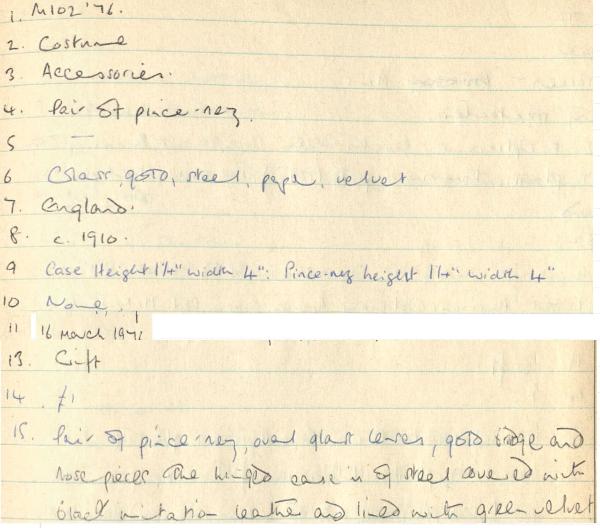 1. M102'76.
2. Costume
3. Accessories.
4. Pair of pince-nez.
5 —
6 Glass, gold, steel, paper, velvet
7. England.
8. c. 1910.
9 Case Height 1¼" width 4": Pince-nez height 1¼" width 4"
10 None
11 16 March 197
13. Gift
14 £1
15. Pair of pince-nez, oval glass lenses, gold bridge and
nose pieces The hinged case is of steel covered with
black imitation leather and lined with green velvet